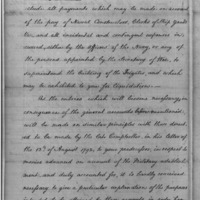 clude all payments which may be made on account
of the pay of Naval Constructors, Clerks of the Yards
&c. and all incidental and contingent expences in-
curred, either by the officers of the Navy, or any of
the persons appointed by the Secretary of War, to
superintend the building of the Frigates, and which
may be exhibited to you for liquidation.
As the entries which will become necessary, in
consequence of the general accounts before mentioned,
will be made on similar principles with those direct-
ed to be made by the late Comptroller in his letter of
the 10th of August 1792, to your predecessor, in respect to
monies advanced on account of the Military establish-
ment, and duly accounted for, it is hardly conceived
necessary to give a particular explanation of the purposes